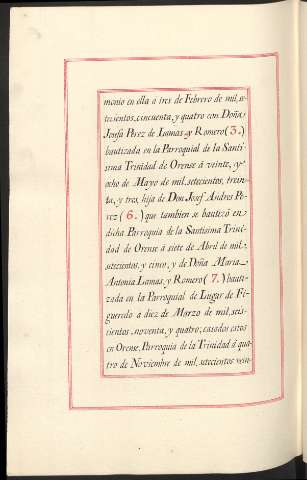 monio en ella á tres de Febrero de mil, se-
tecientos, cincuenta, y quatro con Doña
Josefa Perez de Lamas y Romero (3.)
bautizada en la Parroquial de la Santi-
sima Trinidad de Orense á veinte, y
ocho de Mayo de mil, setecientos, trein-
ta, y tres, hija de Don Josef Andres Pe-
rez (6.) que tambien se bautizó en
dicha Parroquia de la Santisima Trini-
dad de Orense á siete de Abril de mil,
setecientos, y cinco, y de Doña Maria
Antonia Lamas y Romero (7.) bauti-
zada en la Parroquial de Lugar de Fi-
gueredo a diez de Marzo de mil, seis-
cientos, noventa, y quatro; casados estos
en Orense, Parroquia de la Trinidad á qua-
tro de Noviembre de mil, setecientos vein-